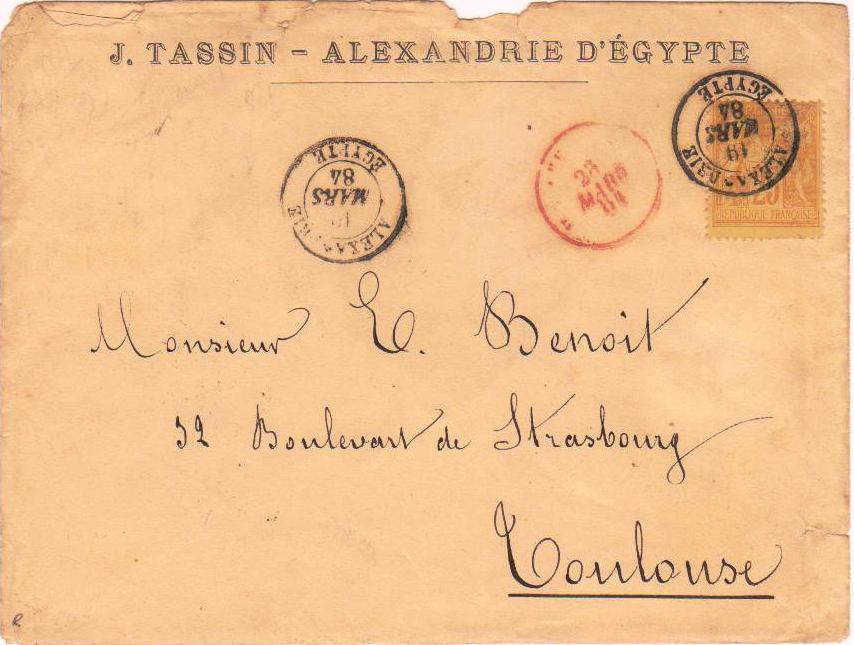 J. TASSIN – ALEXANDRIE D'ÉGYPTE
ALEXANDRIE
19
MARS
84
ÉGYPTE
25
RÉPUBLIQUE FRANÇAISE
ALEXANDRIE
MARS
84
ÉGYPTE
MARS
84
Monsieur E. Benoit
32 Boulevart de Strasbourg
Toulouse
R